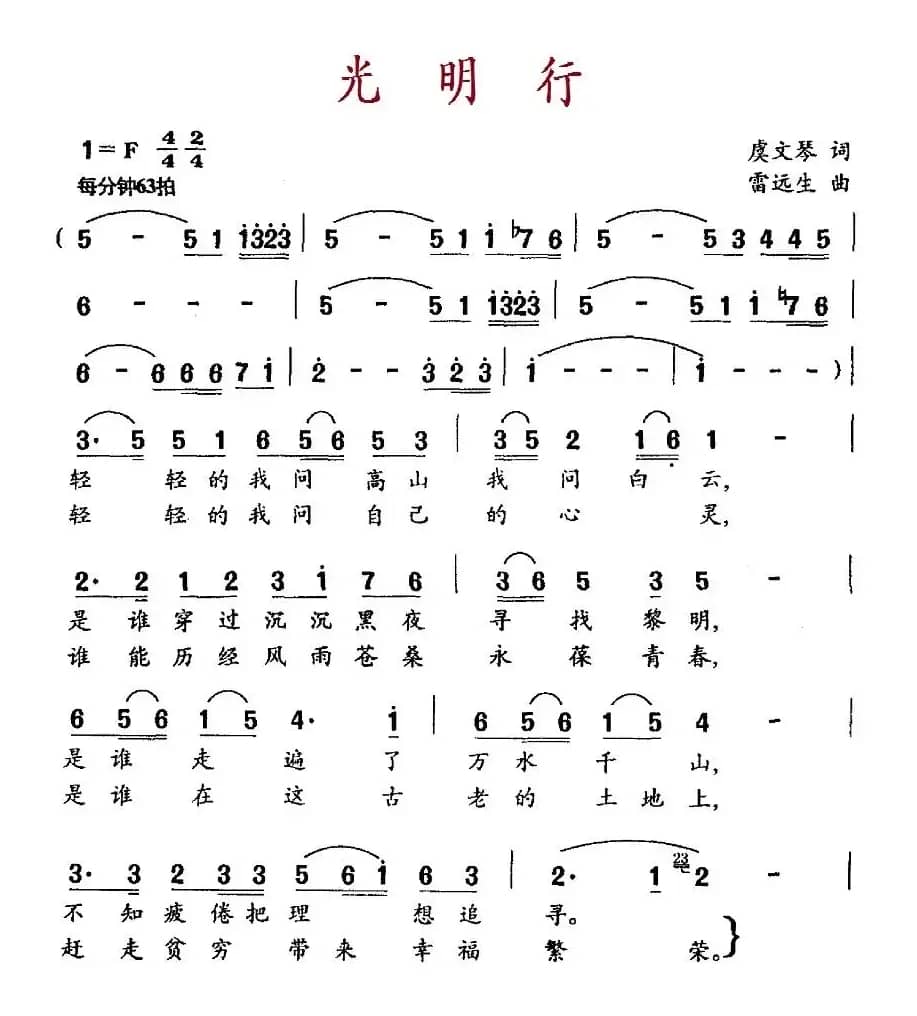 光明行
1=F 4/4 2/4
虞文琴 词
每分钟63拍
雷远生 曲
( 5 - 5 1 1̇3̇2̇3̇ | 5 - 5 1 1̇ ♭7 6 | 5 - 5 3 4 4 5 |
6 - - - | 5 - 5 1 1̇3̇2̇3̇ | 5 - 5 1 1̇ ♮7 6 |
6 - 6 6 6 7 1̇ | 2̇ - - 3̇ 2̇ 3̇ | 1̇ - - - | 1̇ - - - ) |
3· 5 5 1 6 5 6 5 3 | 3 5 2 1 6̣ 1 - |
轻 轻的我问 高山 我 问 白 云，
轻 轻的我问 自己 的 心 灵，
2· 2 1 2 3 1̇ 7 6 | 3 6 5 3 5 - |
是 谁穿过沉沉黑夜 寻 找 黎明，
谁 能历经风雨苍桑 永 葆 青春，
6 5 6 1 5 4· 1̇ | 6 5 6 1 5 4 - |
是谁 走 遍 了 万水 千 山，
是谁 在 这 古 老的 土地上，
3· 3 2 3 3 5 6 1̇ 6 3 | 2· 1 23 2 - |
不 知疲倦把理 想追 寻。
赶 走贫穷 带来 幸福 繁 荣。}